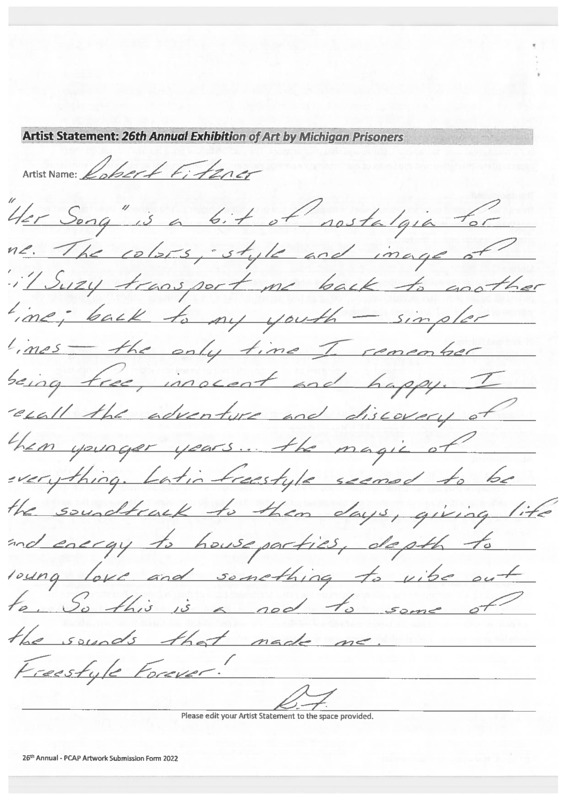 Artist Statement: 26th Annual Exhibition of Art by Michigan Prisoners
Artist Name: Robert Fitzner
"Her Song" is a bit of nostalgia for
me. The colors, style and image of
Li'l Suzy transport me back to another
time; back to my youth — simpler
times — the only time I remember
being free, innocent and happy. I
recall the adventure and discovery of
them younger years... the magic of
everything. Latin freestyle seemed to be
the soundtrack to them days, giving life
and energy to house parties, depth to
young love and something to vibe out
to. So this is a nod to some of
the sounds that made me.
Freestyle Forever!
R.F.
Please edit your Artist Statement to the space provided.
26th Annual - PCAP Artwork Submission Form 2022